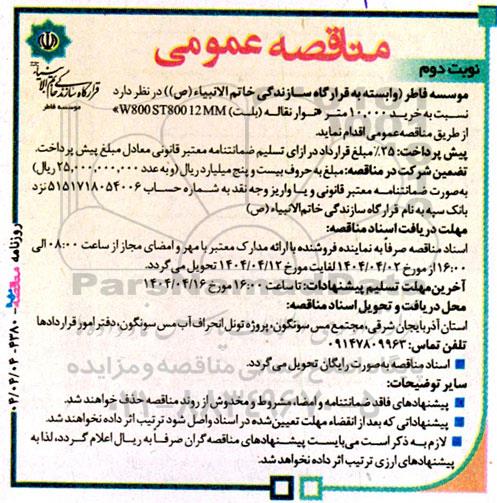 مناقصه عمومی
نوبت دوم
قرارگاه سازندگی خاتم الانبیاء
موسسه فاطر
موسسه فاطر (وابسته به قرارگاه سازندگی خاتم الانبیاء (ص)) در نظر دارد
نسبت به خرید ۱۰,۰۰۰ متر «نوار نقاله (بلت) W800 ST800 12 MM»
از طریق مناقصه عمومی اقدام نماید.
پیش پرداخت: ۳۵٪ مبلغ قرارداد در ازای تسلیم ضمانتنامه معتبر قانونی معادل مبلغ پیش پرداخت.
تضمین شرکت در مناقصه: مبلغ به حروف بیست و پنج میلیارد ریال (و به عدد ۲۵,۰۰۰,۰۰۰,۰۰۰ ریال)
به‌صورت ضمانتنامه معتبر قانونی و یا واریز وجه نقد به شماره حساب ۵۱۵۱۷۱۸۰۵۴۰۰۶ نزد
بانک سپه به نام قرارگاه سازندگی خاتم‌الانبیاء (ص)
مهلت دریافت اسناد مناقصه:
اسناد مناقصه صرفاً به نماینده فروشنده با ارائه مدارک معتبر با مهر و امضای مجاز از ساعت ۰۸:۰۰ الی
۱۶:۰۰ از مورخ ۱۴۰۴/۰۴/۰۲ لغایت مورخ ۱۴۰۴/۰۴/۱۲ تحویل می‌گردد.
آخرین مهلت تسلیم پیشنهادات: تا ساعت ۱۶:۰۰ مورخ ۱۴۰۴/۰۴/۱۶
محل دریافت و تحویل اسناد مناقصه:
استان آذربایجان شرقی، مجتمع مس سونگون، پروژه تونل انحراف آب مس سونگون، دفتر امور قراردادها
تلفن تماس: ۰۹۱۴۷۸۰۹۹۶۳
اسناد مناقصه به صورت رایگان تحویل می‌گردد.
سایر توضیحات:
پیشنهادهای فاقد ضمانتنامه و امضاء، مشروط و مخدوش از روند مناقصه حذف خواهند شد.
پیشنهاداتی که بعد از انقضاء مهلت تعیین‌شده در اسناد واصل شود ترتیب اثر داده نخواهند شد.
لازم به ذکر است می‌بایست پیشنهادهای مناقصه‌گران صرفاً به ریال اعلام گردد، لذا به
پیشنهادهای ارزی ترتیب اثر داده نخواهد شد.
روزنامه مناقصه ۴۳۸۰ - ۰۴/۰۴/۰۴